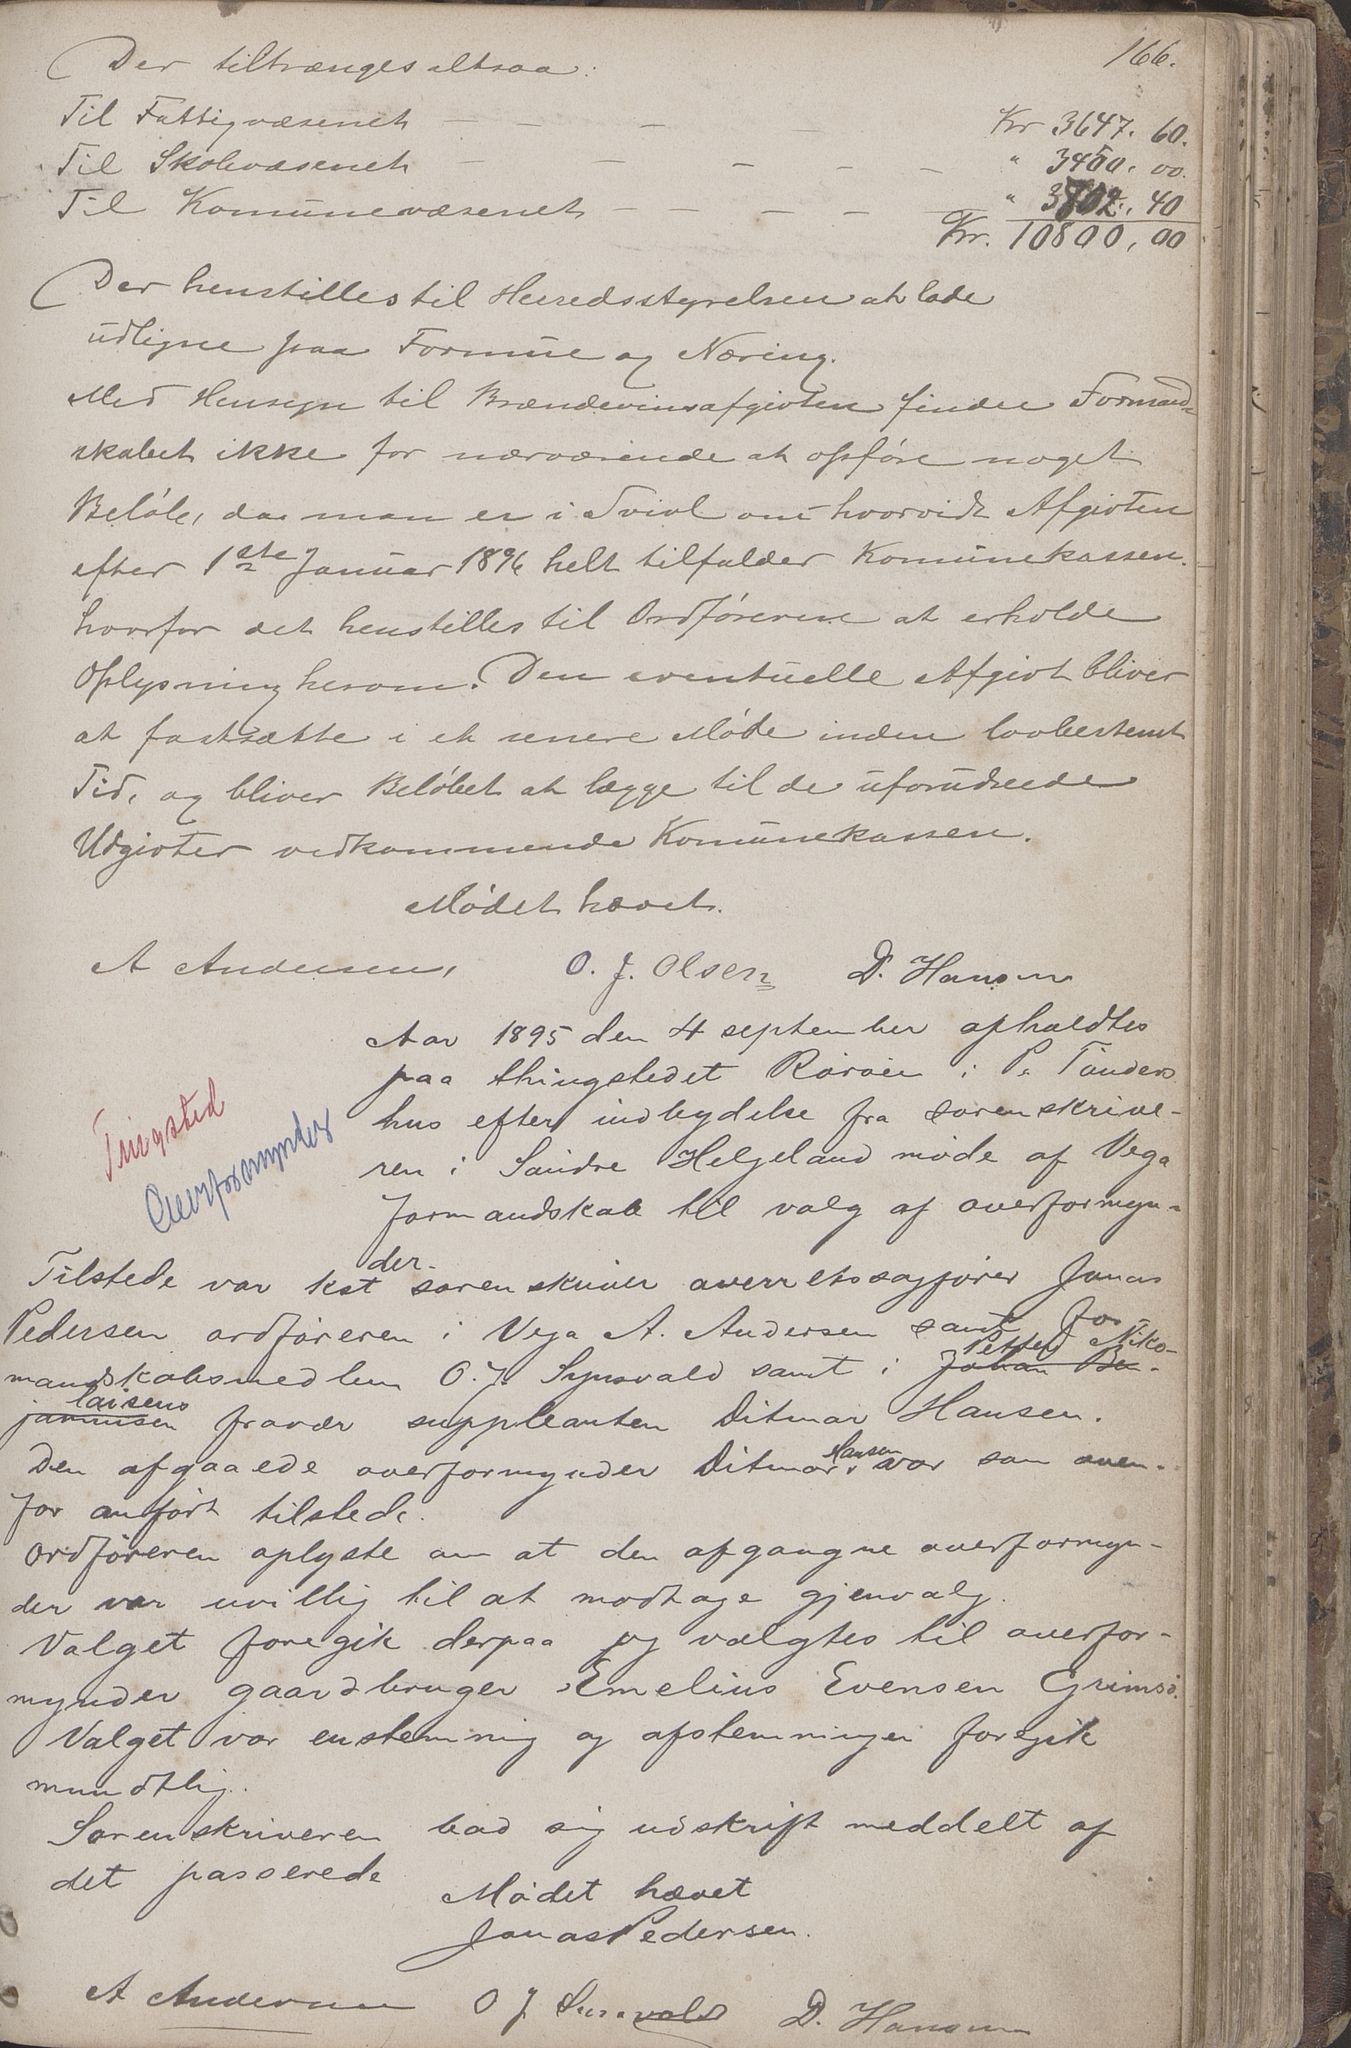 166.
Der tiltrænges altsaa:
Til Fattigvæsenet — — — Kr 3647. 60.
Til Skolevæsenet — — — — — " 3400. 00.
Til Komunevæsenet — — — — " 3802. 40
Kr. 10800,00
Der henstilles til Herredsstyrelsen at lade
udligne paa Formue og Næring.
Med Hensyn til Brændevinsafgivten finder Formand-
skabet ikke for nærværende at opføre noget
Beløb, da man er i Tvivl om hvorvidt Afgivten
efter 1ste Januar 1896 helt tilfalder Komunekassen.
hvorfor det henstilles til Ordføreren at erholde
Oplysning herom. Den eventuelle Afgivt bliver
at fastsætte i et senere Møde inden lovbestemt
Tid, og bliver Beløbet at lægge til de uforudseede
Udgivter vedkommende Komunekassen.
Mødet hævet.
A Andersen, O. J. Olsen D. Hansen
Aar 1895 den 4 september afholdtes
paa thingstedet Rørøen i P. Tønders
hus efter indbydelse fra sorenskrive-
ren i Søndre Helgeland møde af Vega
formandskab til valg af overformyn-
der.
Tingsted
Overformynder
Tilstede var kst sorenskriver overretssagfører Jonas
Pedersen ordføreren i Vega A. Andersen samt for
mandskabsmedlem O. J. Synsvald samt i Johan Be- Petter Niko-
jaminsen laisens fravær suppleanten Ditmar Hansen.
Den afgaaede overformynder Ditmar Hansen var som oven-
for anført tilstede.
Ordføreren oplyste om at den afgangne overformyn-
der var uvillig til at modtage gjenvalg.
Valget foregik derpaa og valgtes til overfor-
mynder gaardbruger Emelius Evensen Grimsø.
Valget var enstemmig og afstemningen foregik
mundtlig.
Sorenskriveren bad sig udskrift meddelt af
det passerede
Mødet hævet
Jonas Pedersen.
A Andersen O J Synsvald D. Hansen